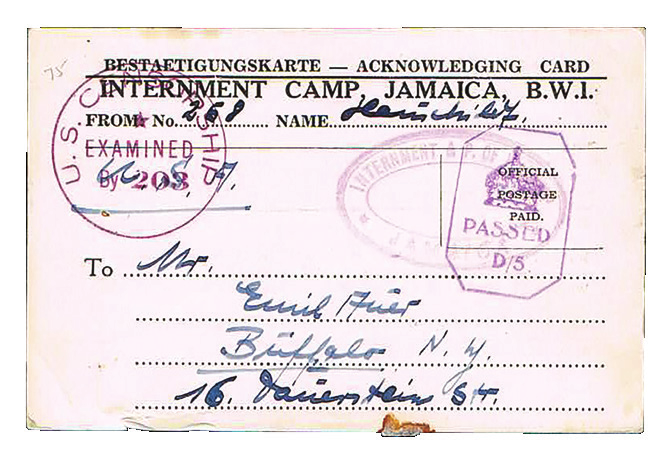 75
BESTAETIGUNGSKARTE — ACKNOWLEDGING CARD
INTERNMENT CAMP, JAMAICA, B.W.I.
FROM: No. 268 NAME
U.S. CENSORSHIP
EXAMINED
By 203
U. S. A.
INTERNMENT OF
OFFICIAL
POSTAGE
PAID.
PASSED
D/5.
To Mr.
Emil
Buffalo N. Y.
16. Dauerstein Str.